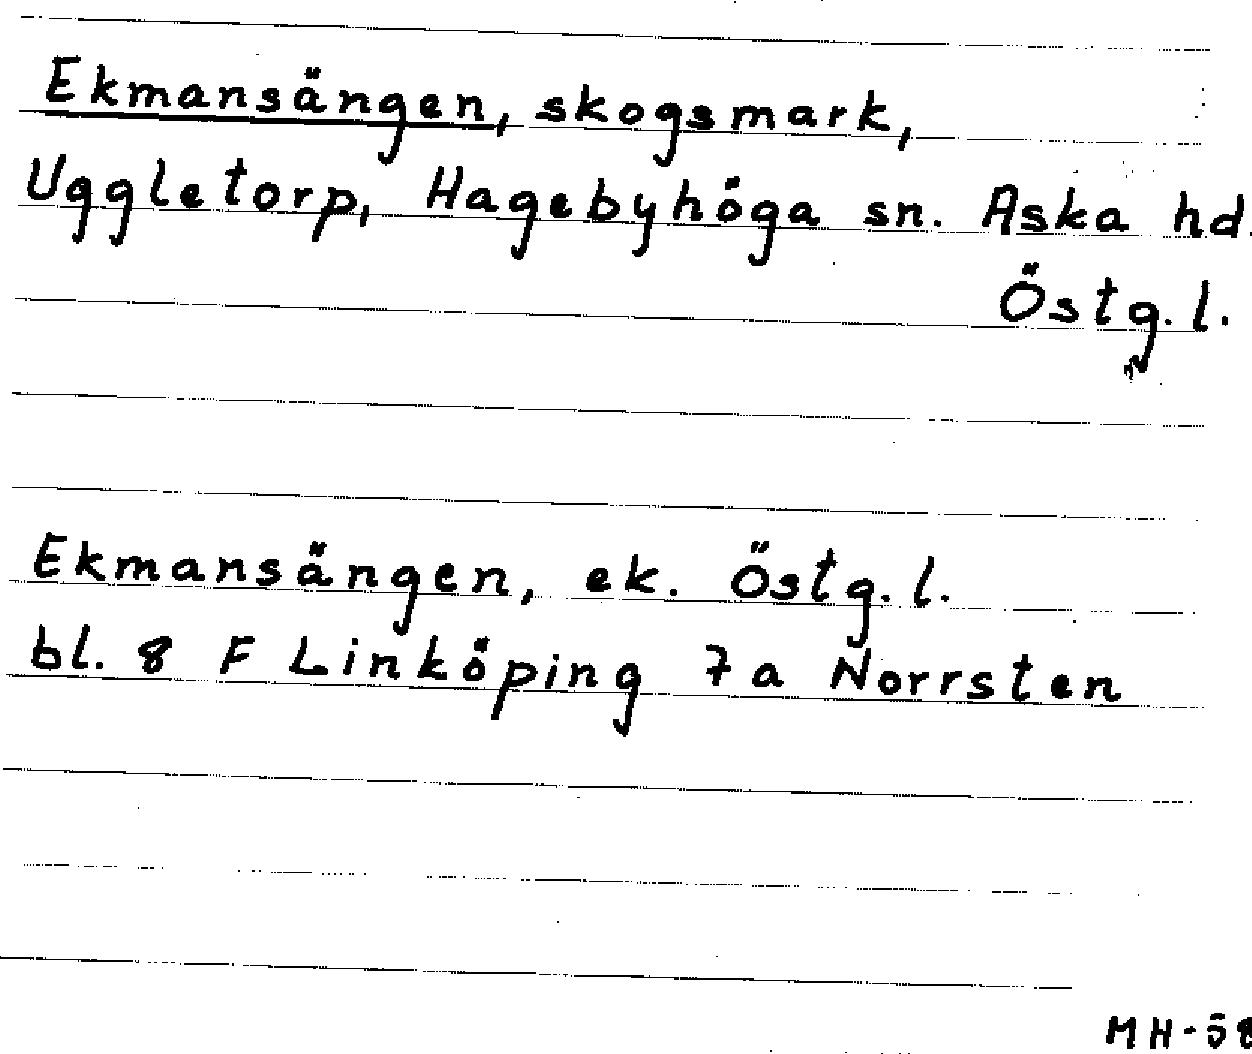 Ekmansängen, skogsmark,
Uggletorp, Hagebyhöga sn. Aska hd.
Östg. l.
Ekmansängen, ek. Östg. l.
bl. 8 F Linköping 7a Norrsten